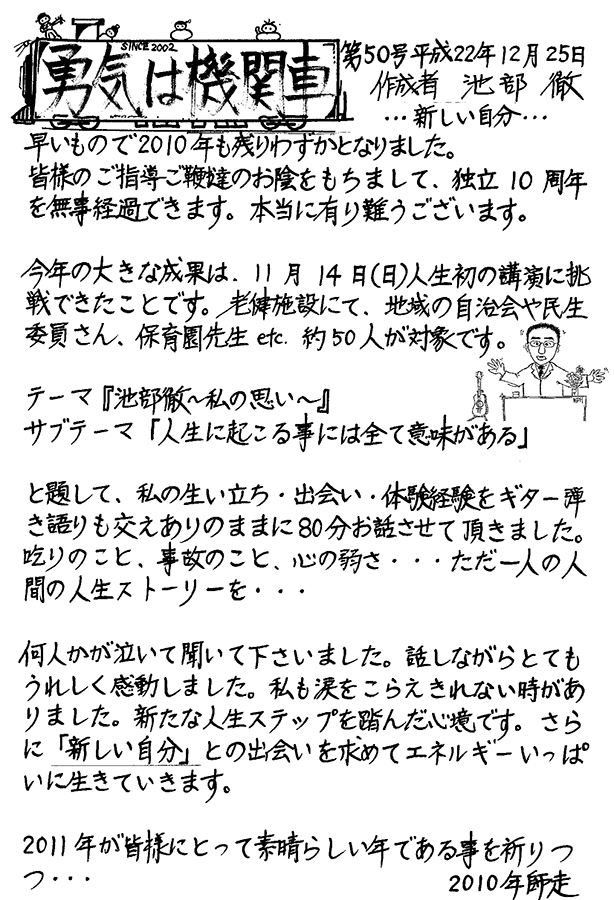 SINCE 2002
勇気は機関車
第50号平成22年12月25日
作成者 池部 徹
…新しい自分…
早いもので2010年も残りわずかとなりました。
皆様のご指導ご鞭撻のお陰をもちまして、独立10周年
を無事経過できます。本当に有り難うございます。
今年の大きな成果は、11月14日(日)人生初の講演に挑
戦できたことです。老健施設にて、地域の自治会や民生
委員さん、保育園先生etc.約50人が対象です。
テーマ『池部徹~私の思い~』
サブテーマ「人生に起こる事には全て意味がある」
と題して、私の生い立ち・出会い・体験経験をギター弾
き語りも交えありのままに80分お話させて頂きました。
吃りのこと、事故のこと、心の弱さ・・・ただ一人の人
間の人生ストーリーを・・・
何人かが泣いて聞いて下さいました。話しながらとても
うれしく感動しました。私も涙をこらえきれない時があ
りました。新たな人生ステップを踏んだ心境です。さら
に「新しい自分」との出会いを求めてエネルギーいっぱ
いに生きていきます。
2011年が皆様にとって素晴らしい年である事を祈りつ
つ・・・
2010年師走